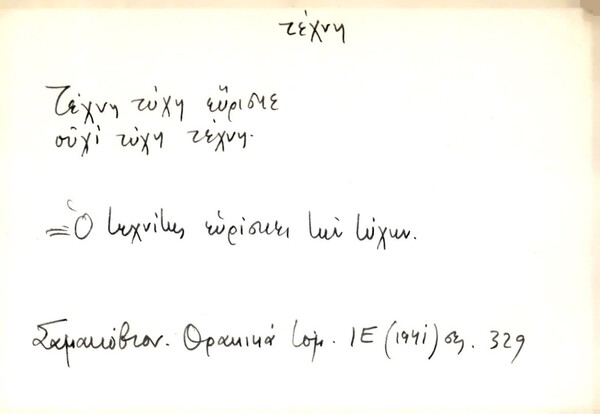 τέχνη
Τέχνη τύχη εὕρισκε
οὐχὶ τύχη τέχνη.
= Ὁ τεχνίτης εὑρίσκει τὴν τύχην.
Σαμακόβιον. Θρακικά τομ. ΙΕ (1941) σελ. 329